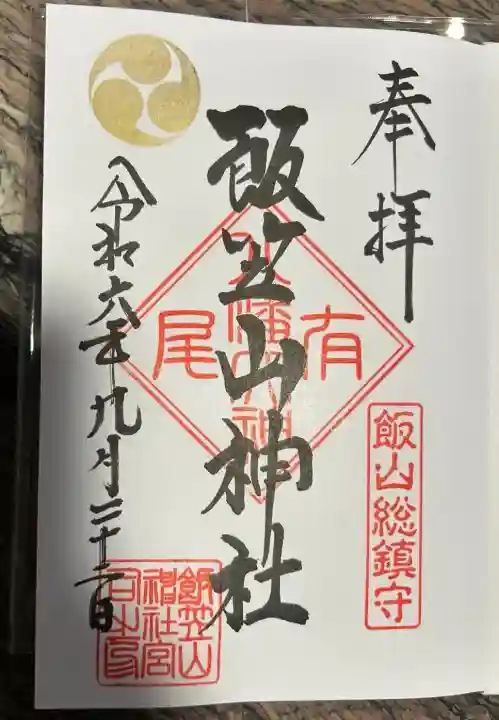 奉拝
飯山総鎮守
飯笠山神社
八幡大神
有尾
令和六年九月二十二日
飯笠山
神社宮
司之印